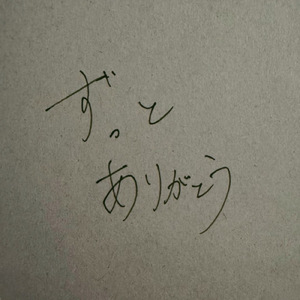 ずっと
ありがとう